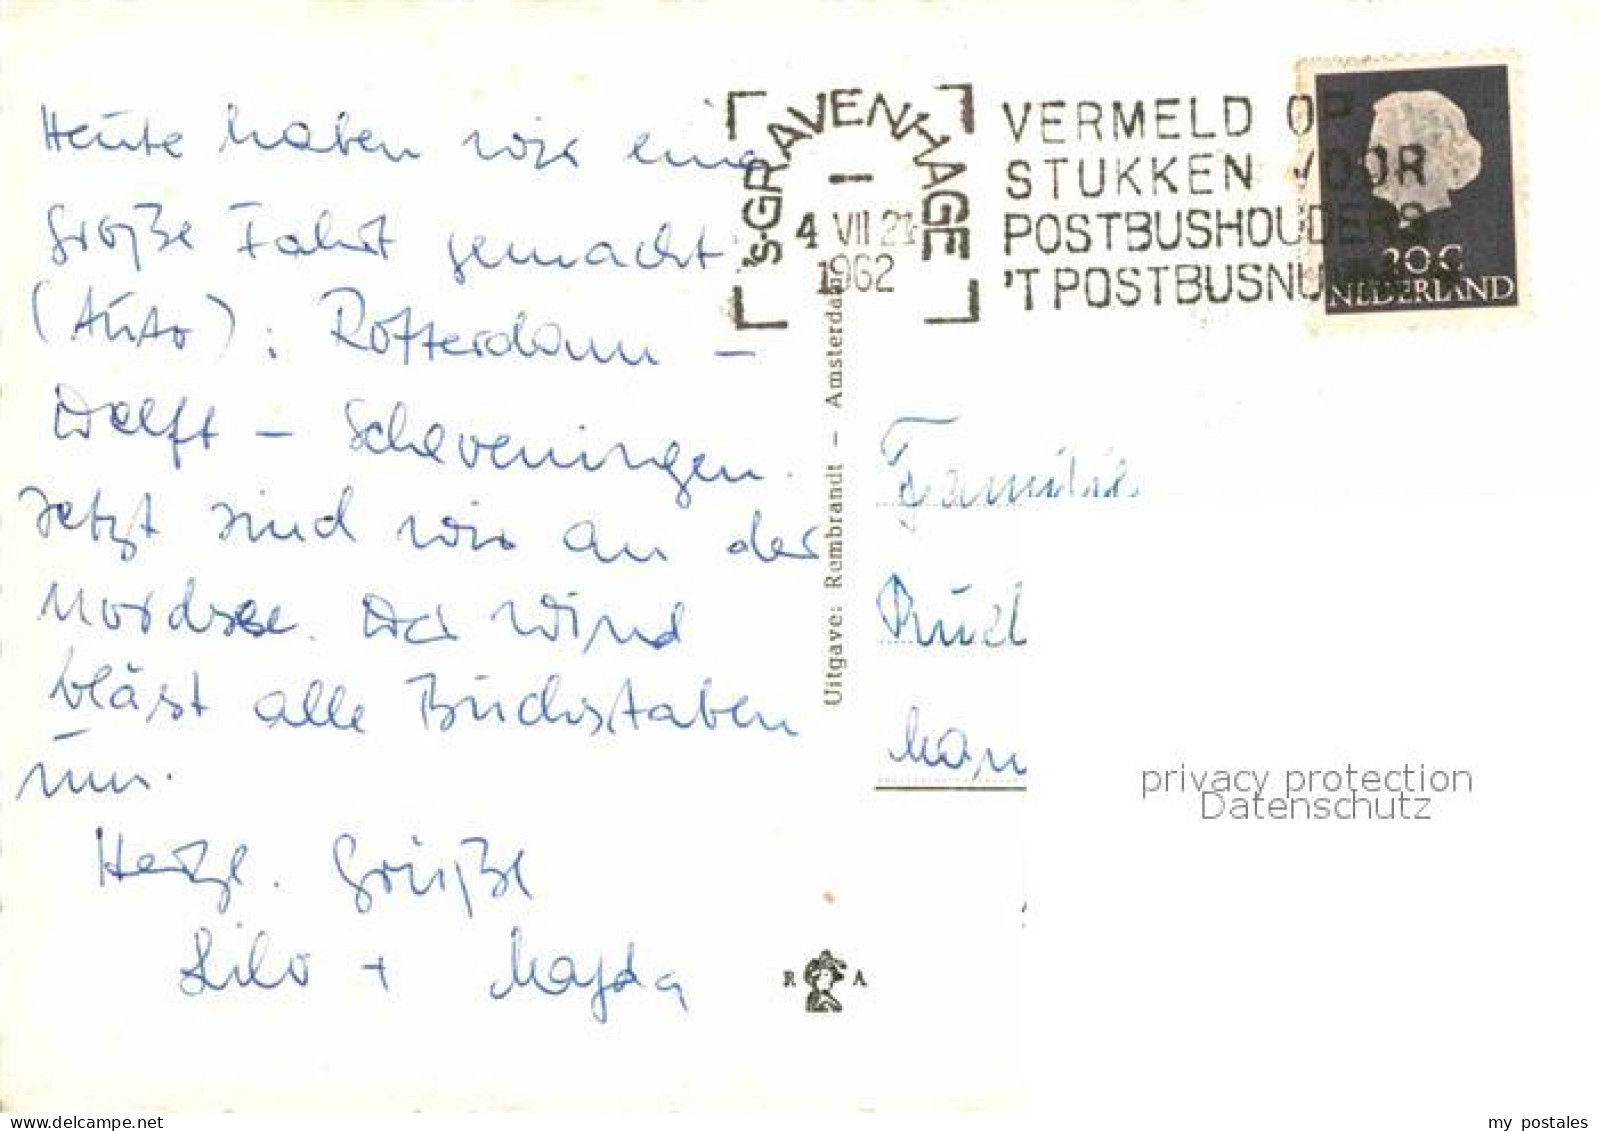 Heute haben wir eine
große Fahrt gemacht
(Auto): Rotterdam –
Delft – Scheveningen.
Jetzt sind wir an der
Nordsee. Der Wind
bläst alle Buchstaben
um.
Herzl. Grüße
Lilo + Magda
's-GRAVENHAGE
1
4 VII 21
1962
VERMELD OP
STUKKEN VOOR
POSTBUSHOUDERS
'T POSTBUSNUMMER
20 C
NEDERLAND
Uitgave: Rembrandt – Amsterdam
Familie
R A
privacy protection
Datenschutz
my postales